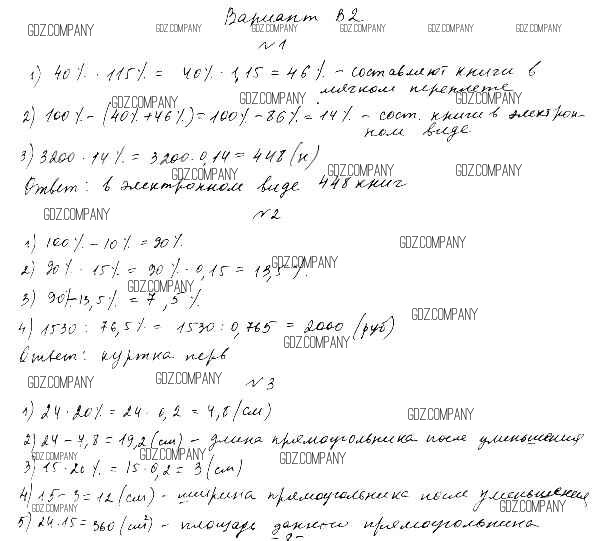 Вариант В2.
GDZ.COMPANY GDZ.COMPANY GDZ.COMPANY GDZ.COMPANY GDZ.COMPANY
№1
1) 40% · 115% = 40% · 1,15 = 46% – составляют книги в
мягком переплете
GDZ.COMPANY GDZ.COMPANY GDZ.COMPANY
2) 100% – (40% + 46%) = 100% – 86% = 14% – сост. книги в электрон-
ном виде
3) 3200 · 14% = 3200 · 0,14 = 448 (к)
GDZ.COMPANY GDZ.COMPANY GDZ.COMPANY
Ответ: в электронном виде 448 книг
GDZ.COMPANY
№2
1) 100% – 10% = 90%
GDZ.COMPANY
2) 90% · 15% = 90% · 0,15 = 13,5%.
GDZ.COMPANY
3) 90% – 13,5% = 7 ,5%
GDZ.COMPANY
4) 1530 : 76,5% = 1530 : 0,765 = 2000 (руб)
GDZ.COMPANY
GDZ.COMPANY
Ответ: куртка перв
GDZ.COMPANY GDZ.COMPANY
№3
1) 24 · 20% = 24 · 0,2 = 4,8 (см)
GDZ.COMPANY
2) 24 – 4,8 = 19,2 (см) – длина прямоугольника после уменьшения
GDZ.COMPANY GDZ.COMPANY GDZ.COMPANY
3) 15 · 20% = 15 · 0,2 = 3 (см)
4) 15 – 3 = 12 (см) – ширина прямоугольника после уменьшения
GDZ.COMPANY GDZ.COMPANY
5) 24 · 15 = 360 (см²) – площадь данного прямоугольника
GDZ.COMPANY